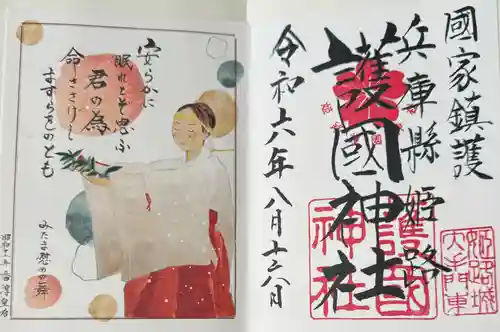 國家鎮護
兵庫縣姫路
護國神社
令和六年八月
護國
神社
姫路城
大手門東
安らかに
眠れとぞ思ふ
君の為
命ささげし
ますらをのとも
みたま慰めの舞
香淳皇后